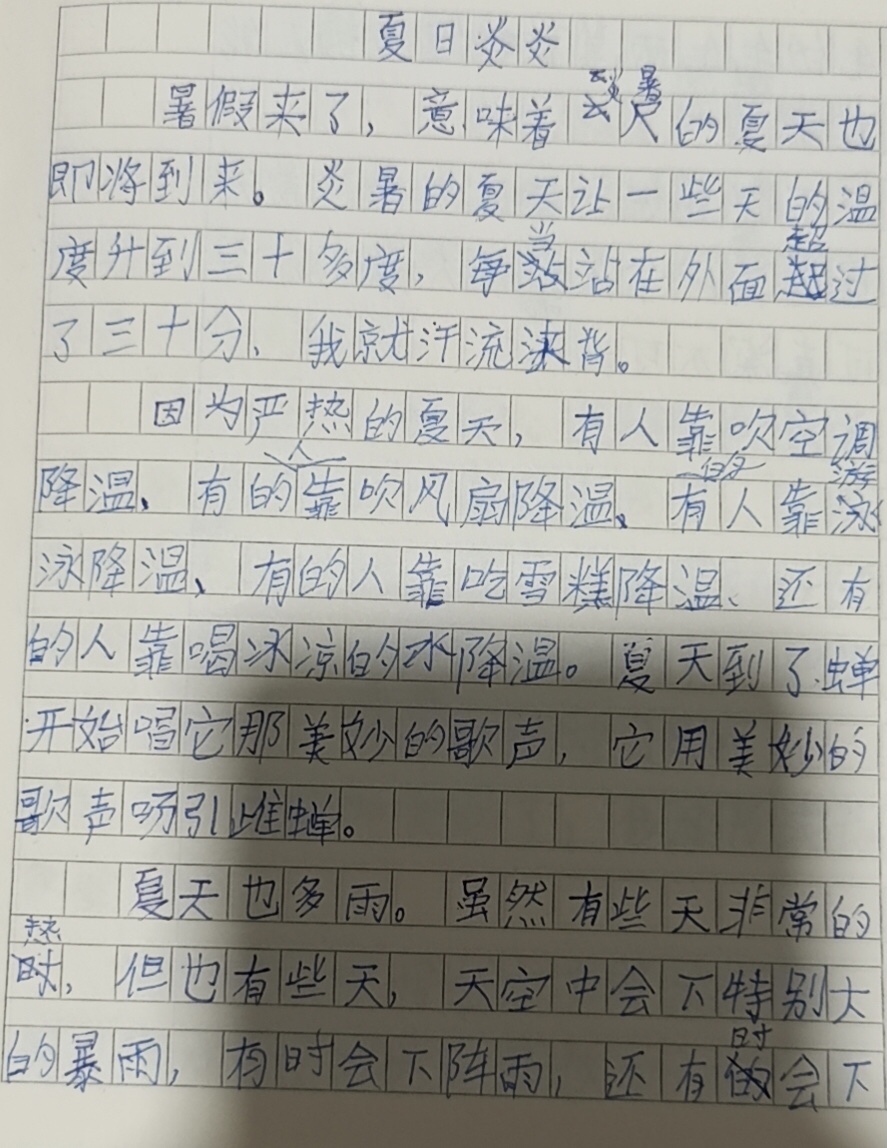 夏日炎炎
暑假来了，意味着炎暑的夏天也
即将到来。炎暑的夏天让一些天的温
度升到三十多度，每当站在外面超过
了三十分、我就汗流浃背。
因为严热的夏天，有人靠吹空调
降温、有的人靠吹风扇降温、有的人靠游
泳降温、有的人靠吃雪糕降温、还有
的人靠喝冰凉的水降温。夏天到了.蝉
开始唱它那美妙的歌声，它用美妙的
歌声吸引雌蝉。
夏天也多雨。虽然有些天非常的
热，但也有些天，天空中会下特别大
的暴雨，有时会下阵雨，还有时会下